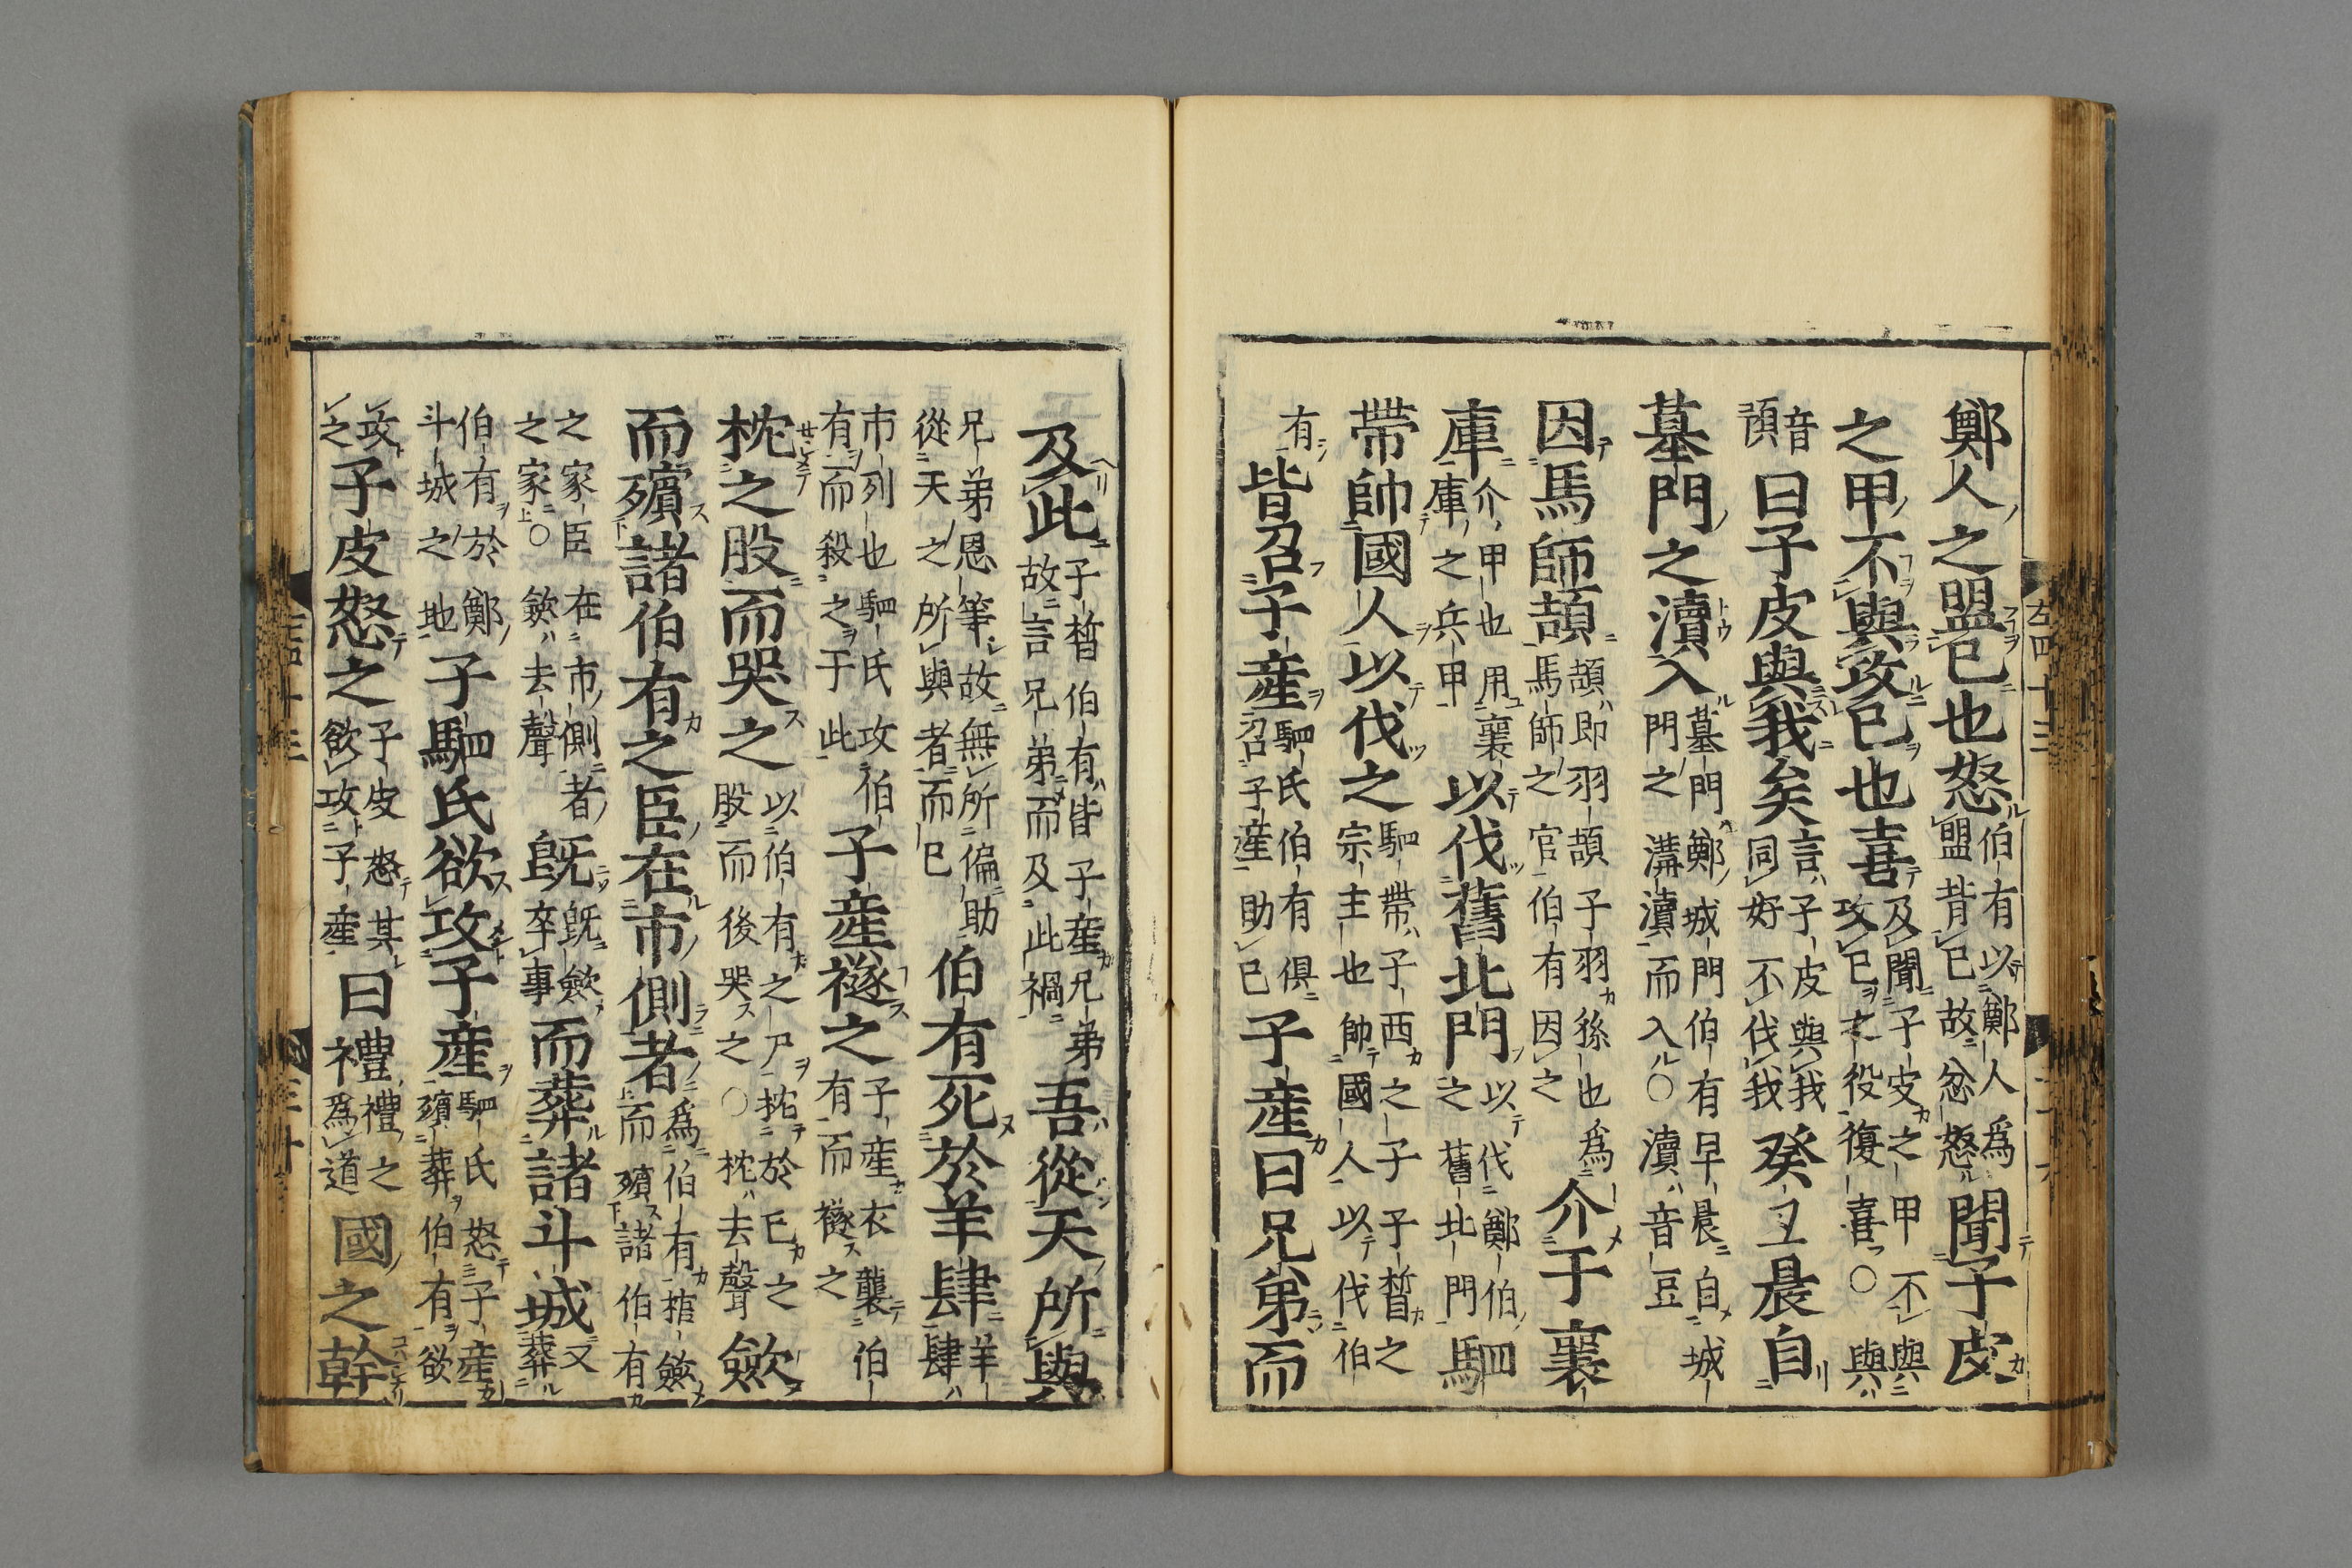 鄭人之盟已也怒伯有以鄭人爲盟背已故忿怒聞子皮
之甲不與攻已也喜及聞子皮之甲不與攻已之役復喜○與
音預曰子皮與我矣言子皮與我同好不伐我癸丑晨自
墓門之瀆入墓門鄭城門伯有早晨自城門之溝瀆而入○瀆音豆
因馬師頡頡即羽頡子羽孫也爲馬師之官伯有因之介于襄
庫介甲也用襄庫之兵甲以伐舊北門以伐鄭伯之舊北門駟
帶帥國人以伐之駟帶子西之子子晳之宗主也帥國人以伐伯
有皆召子產駟氏伯有俱召子產助已子產曰兄弟而
左四十三
及此子晳伯有皆子產兄弟故言兄弟而及此禍吾從天所與
兄弟恩等故無所偏助從天之所與者而已伯有死於羊肆羊肆
市列也駟氏攻伯有而殺之于此子產襚之子產衣襲伯有而襚之
枕之股而哭之以伯有之尸枕於已之股而後哭之○枕去聲斂
而殯諸伯有之臣在市側者爲伯有棺斂而殯諸伯有
之家臣在市側者之家○斂去聲既既斂卒事而葬諸斗城又葬
伯有於鄭斗城之地子駟氏欲攻子產駟氏怒子產殯葬伯有欲
攻之子皮怒之子皮怒其欲攻子產曰禮禮之爲道國之幹